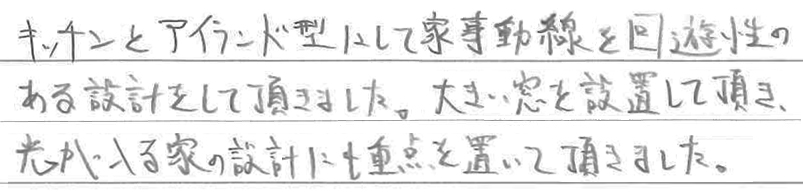 キッチンとアイランド型にして家事動線を回遊性の
ある設計をして頂きました。大きい窓を設置して頂き、
光が入る家の設計にも重点を置いて頂きました。